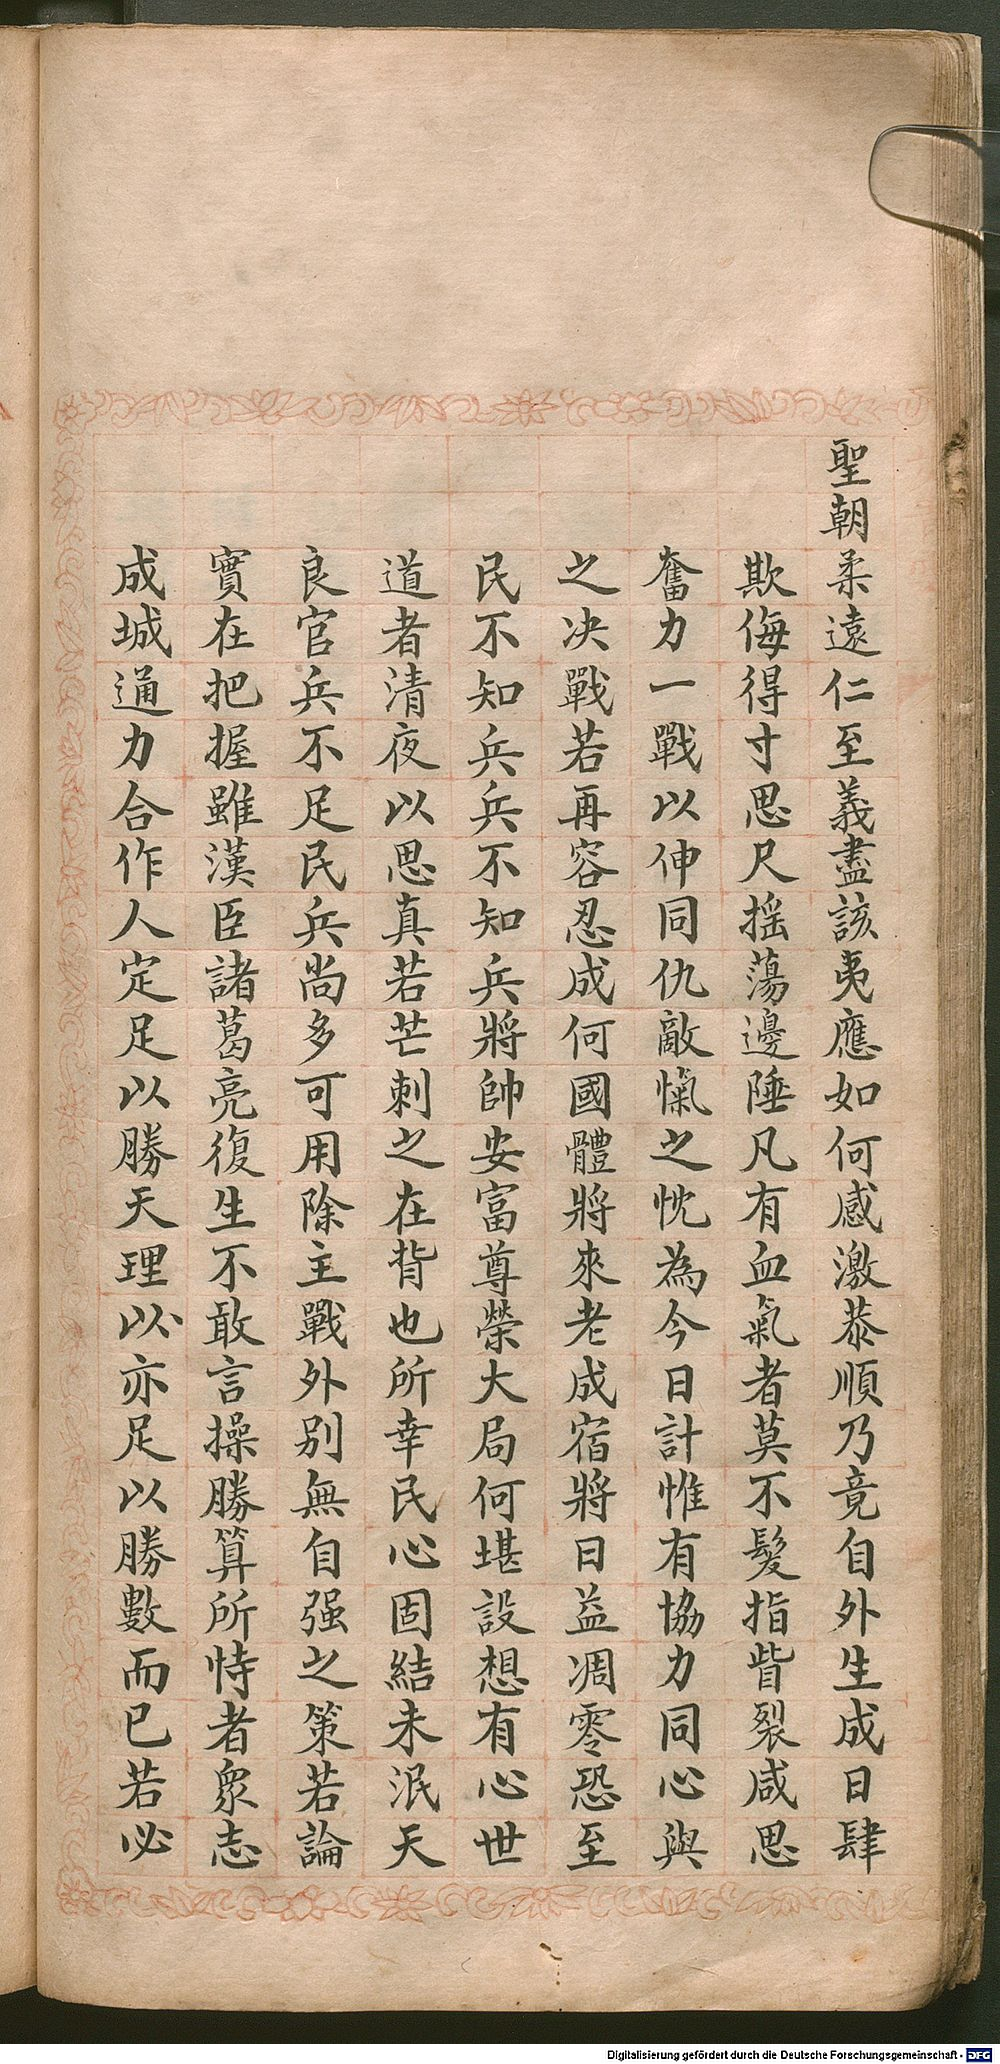 聖朝柔遠仁至義盡該夷應如何感激恭順乃竟自外生成日肆
欺侮得寸思尺搖蕩邊陲凡有血氣者莫不髮指眥裂咸思
奮力一戰以伸同仇敵愾之忱為今日計惟有協力同心與
之决戰若再容忍成何國體將來老成宿將日益凋零恐至
民不知兵兵不知兵將帥安富尊榮大局何堪設想有心世
道者清夜以思真若芒刺之在背也所幸民心固結未泯天
良官兵不足民兵尚多可用除主戰外別無自强之策若論
實在把握雖漢臣諸葛亮復生不敢言操勝算所恃者眾志
成城通力合作人定足以勝天理以亦足以勝數而已若必
Digitalisierung gefördert durch die Deutsche Forschungsgemeinschaft - DFG